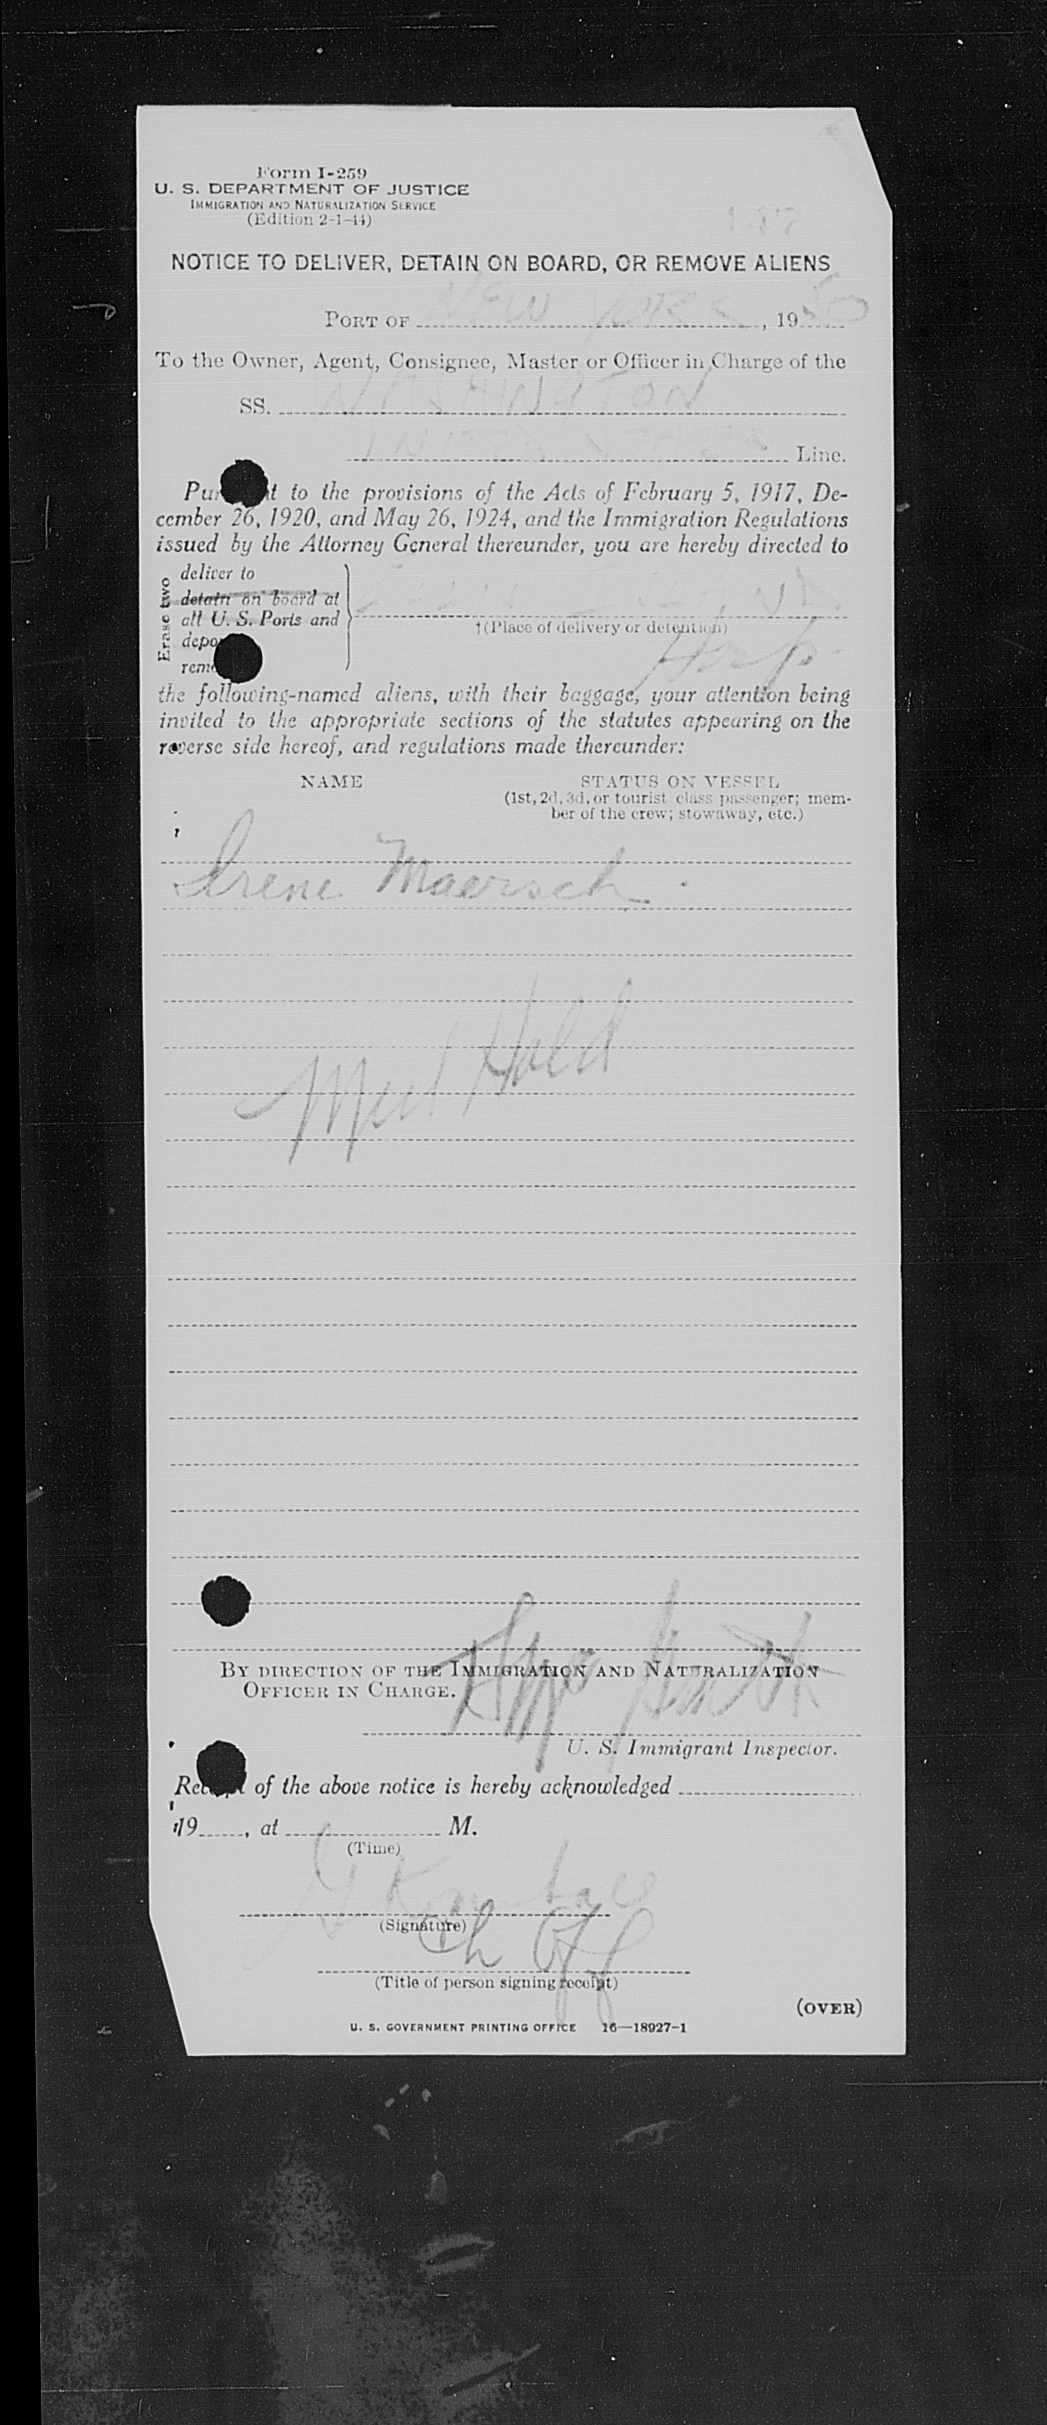 Form I-259
U. S. DEPARTMENT OF JUSTICE
IMMIGRATION AND NATURALIZATION SERVICE
(Edition 2-1-44)
NOTICE TO DELIVER, DETAIN ON BOARD, OR REMOVE ALIENS
PORT OF NEW YORK, 1950
To the Owner, Agent, Consignee, Master or Officer in Charge of the
SS. WASHINGTON
UNITED STATES Line.
to the provisions of the Acts of February 5, 1917, De-
cember 26, 1920, and May 26, 1924, and the Immigration Regulations
issued by the Attorney General thereunder, you are hereby directed to
Erase two
deliver to
detain on board at
all U. S. Ports and
†(Place of delivery or detention)
Hosp
the following-named aliens, with their baggage, your attention being
invited to the appropriate sections of the statutes appearing on the
reverse side hereof, and regulations made thereunder:
NAME STATUS ON VESSEL
(1st, 2d, 3d, or tourist class passenger; mem-
ber of the crew; stowaway, etc.)
Irene Maersch
Med Hold
BY DIRECTION OF THE IMMIGRATION AND NATURALIZATION
OFFICER IN CHARGE.
U. S. Immigrant Inspector.
of the above notice is hereby acknowledged
19, at M.
(Time)
(Signature)
Ch Off
(Title of person signing receipt)
(OVER)
U. S. GOVERNMENT PRINTING OFFICE 16—18927-1